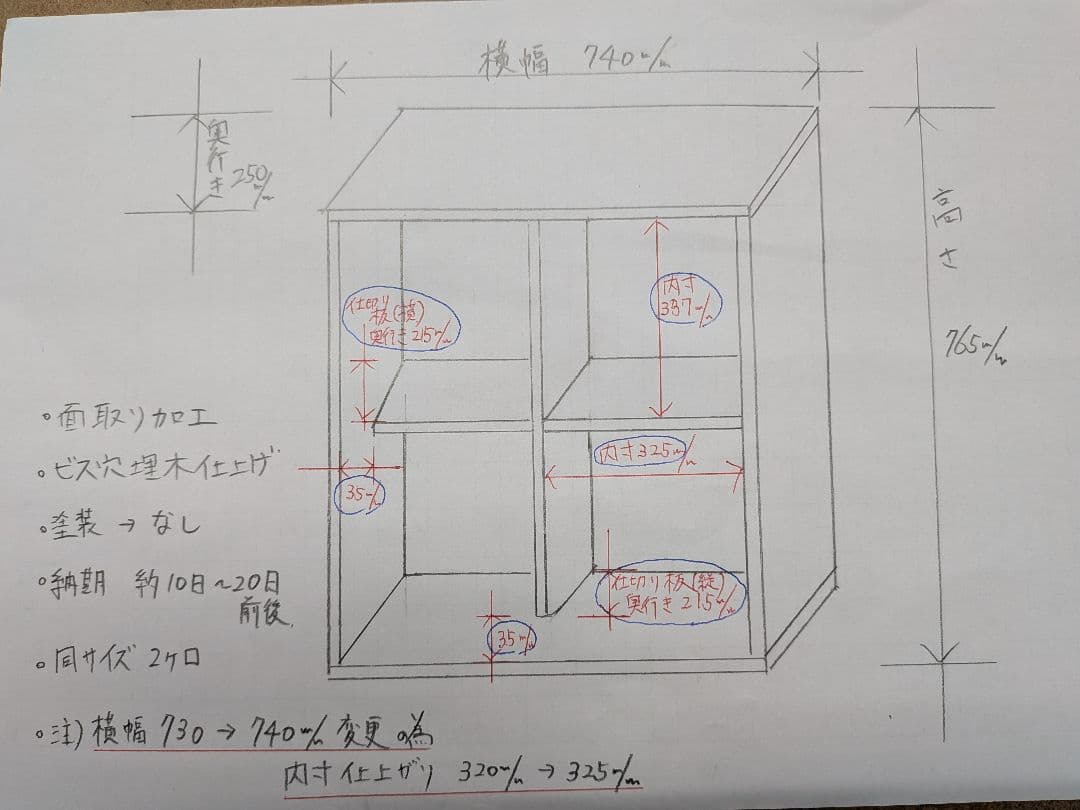 横幅 740m/m
奥行き 250m/m
高さ 765m/m
仕切り
板(横)
奥行き215m/m
内寸
337m/m
内寸325m/m
35m/m
仕切り板(縦)
奥行き215m/m
35m/m
・面取り加工
・ビス穴埋木仕上げ
・塗装→なし
・納期 約10日~20日
前後
・同サイズ2ケ口
・注)横幅730→740m/m変更の為
内寸仕上がり 320m/m→325m/m